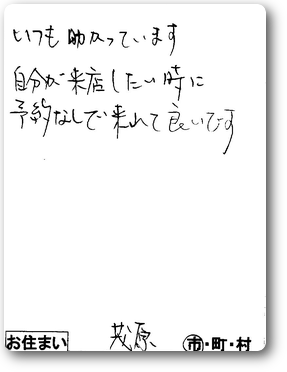 いつも助かっています
自分が来店したい時に
予約なしで来れて良いです
お住まい 茂原 市・町・村